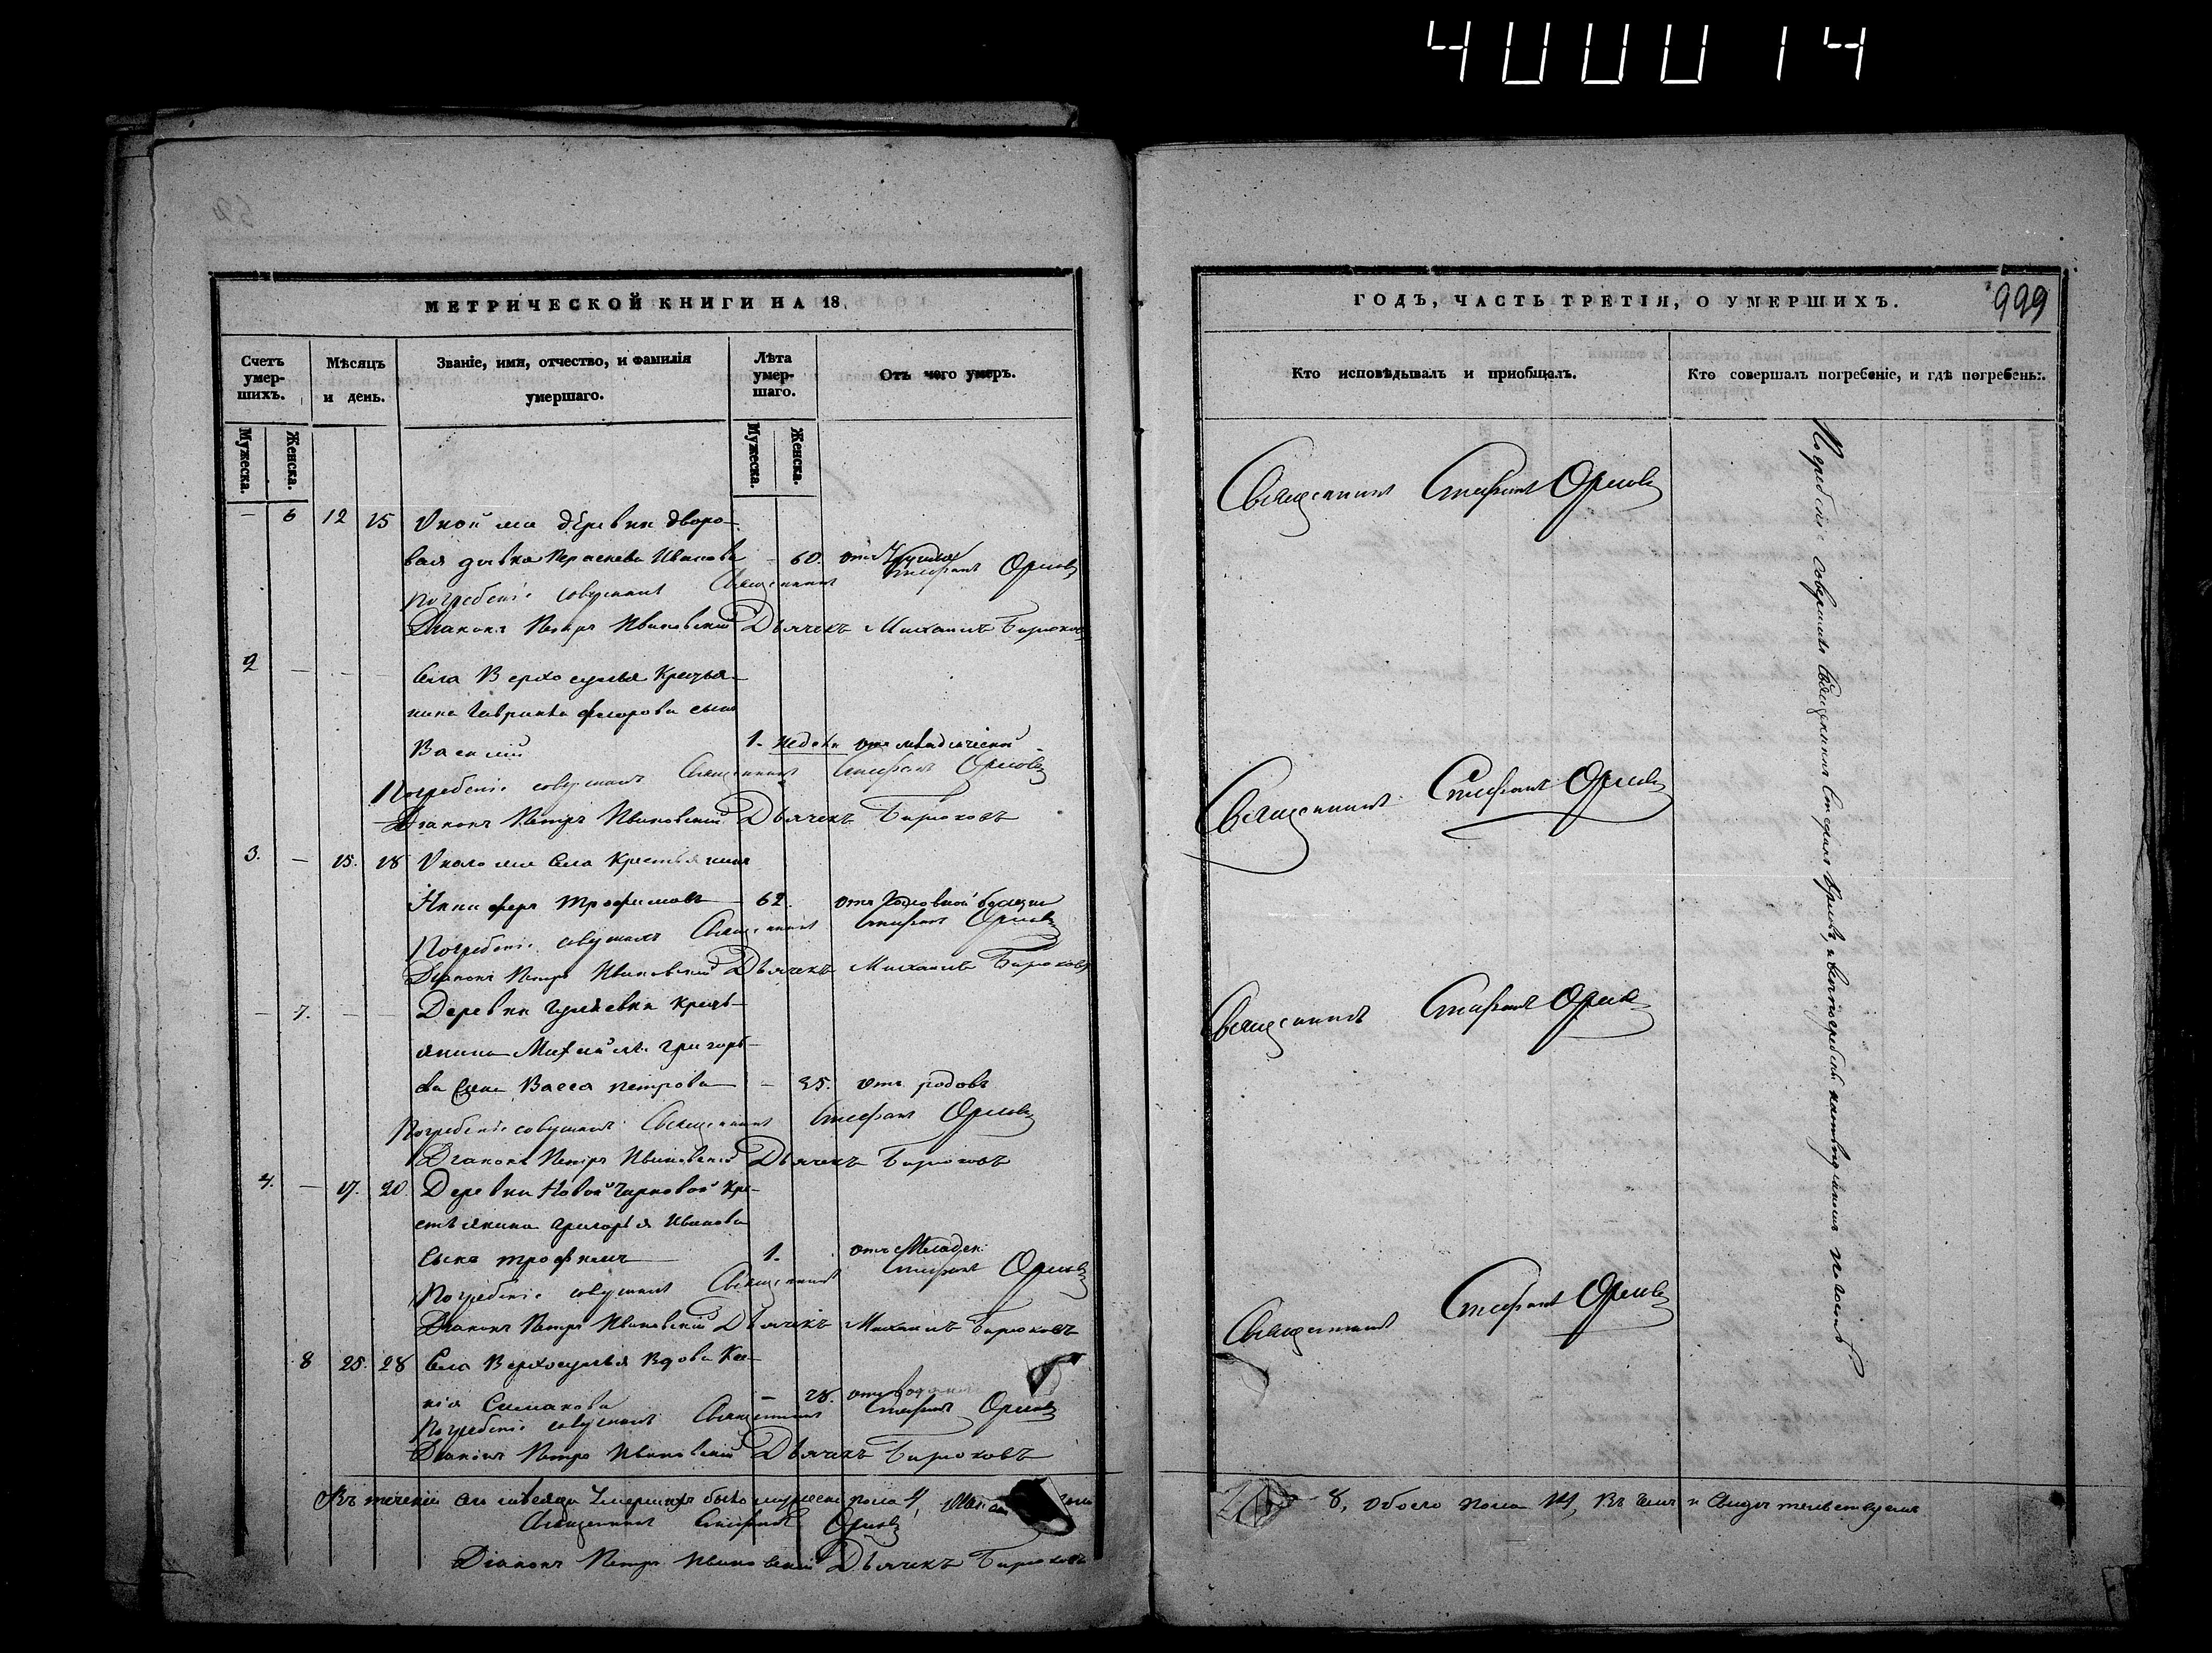 400014
МЕТРИЧЕСКОЙ КНИГИ НА 18
Счетъ умер-шихъ.
Мѣсяцъ и день.
Званіе, имя, отчество, и фамилія умершаго.
Лѣта умер-шаго.
Отъ чего умеръ.
Мужеска.
Женска.
Мужеска.
Женска.
— 6 12 15 деревни дворо-
вая дѣвка Ивановa — 60. отъ
Погребеніе совершалъ Священникъ Стефанъ Орловъ
Діаконъ Петръ Ивановскій Дьячекъ Михаилъ Бирюковъ
2 — — — Села Верхосулья Крестья-
нина Гавриила Федорова сынъ
Василій 1. недели отъ младенческой
Погребеніе совершалъ Священникъ Стефанъ Орловъ
Діаконъ Петръ Ивановскій Дьячекъ Бирюковъ
3. — 15. 18 села Крестьянинъ
Никифоръ Трофимовъ — 62. отъ Головной болезни
Погребеніе совершалъ Священникъ Стефанъ Орловъ
Діаконъ Петръ Ивановскій Дьячекъ Михаилъ Бирюковъ
— 7. — — Деревни кресть-
янина Михаила Григорь-
ева жена Васса Петрова — 35. отъ родовъ
Погребеніе совершалъ Священникъ Стефанъ Орловъ
Діаконъ Петръ Ивановскій Дьячекъ Бирюковъ
4. — 17. 20. Деревни Новой Кре-
стьянина Григорья Иванова
Сынъ Трофимъ 1. отъ Младен.
Погребеніе совершалъ Священникъ Стефанъ Орловъ
Діаконъ Петръ Ивановскій Дьячекъ Михаилъ Бирюковъ
8 25. 28 Села Верхосулья Вдова Ксе-
нія — 78. отъ
Погребеніе совершалъ Священникъ Стефанъ Орловъ
Діаконъ Петръ Ивановскій Дьячекъ Бирюковъ
Въ теченіи сего месяца Умершихъ было мужеска пола 4,
Священникъ Стефанъ Орловъ
Діаконъ Петръ Ивановскій Дьячекъ Бирюковъ
ГОДЪ, ЧАСТЬ ТРЕТІЯ, О УМЕРШИХЪ.
999
Кто исповѣдывалъ и пріобщалъ.
Кто совершалъ погребеніе, и гдѣ погребены.
Священникъ Стефанъ Орловъ
Священникъ Стефанъ Орловъ
Священникъ Стефанъ Орловъ
Священникъ Стефанъ Орловъ
Погребеніе совершалъ Священникъ Стефанъ Орловъ, и
8, обоего пола Въ чемъ и Свидетельствуемъ